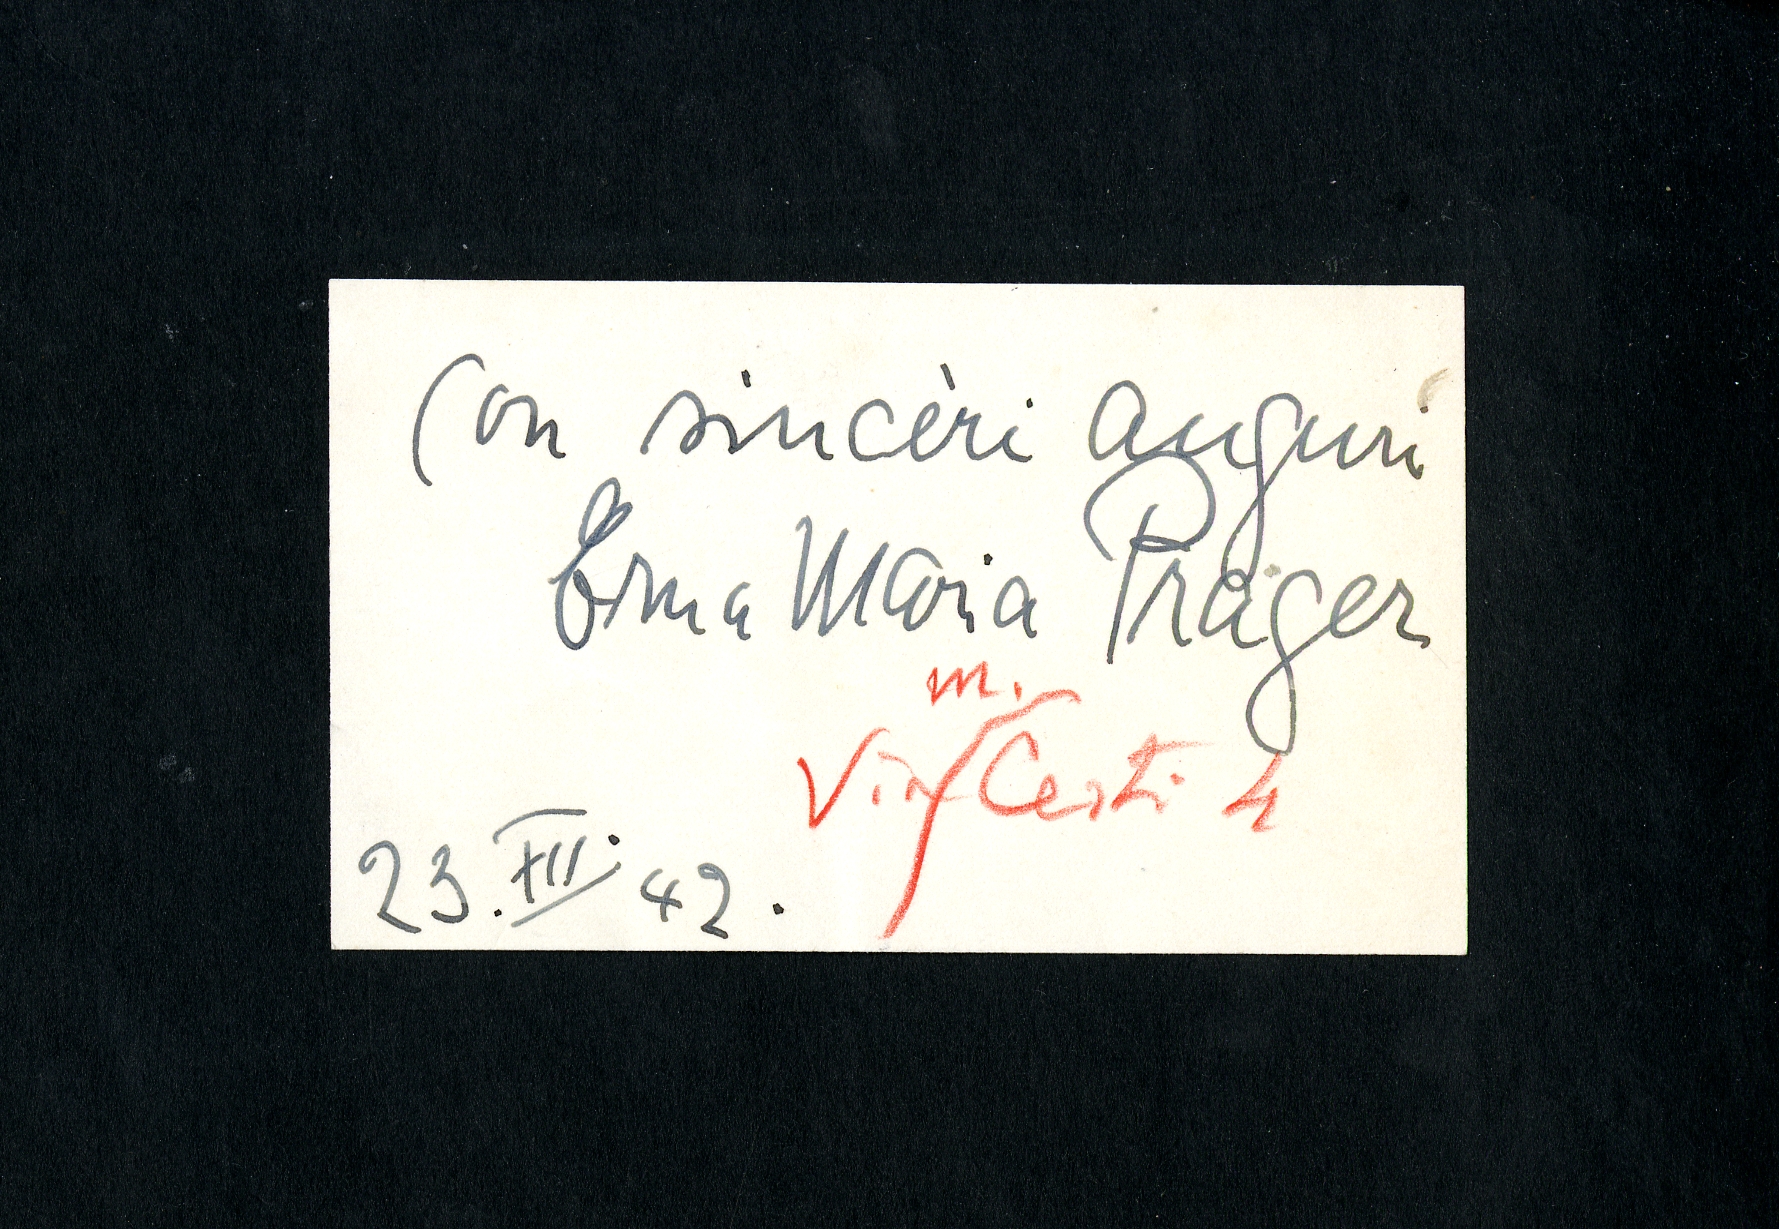 Con sincèri auguri
Erma Maria Präger
m.
Via Cesti 4
23. XII. 42.